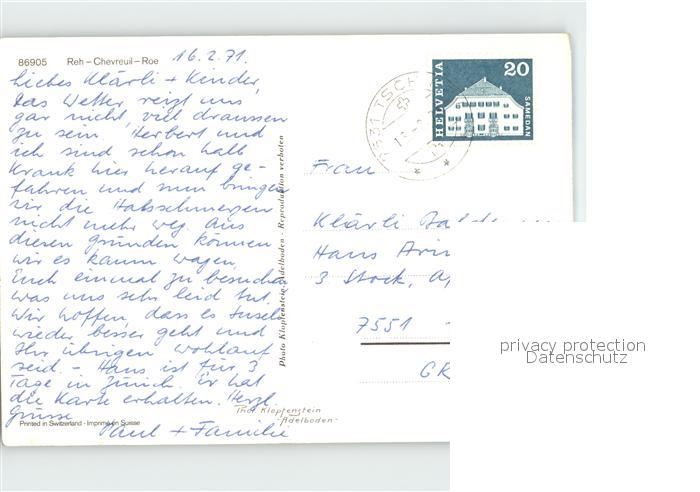 86905 Reh – Chevreuil – Roe
16.2.71.
Liebes Klärli + Kinder,
Das Wetter reizt uns
gar nicht, viel draussen
zu sein. Herbert und
ich sind schon halb
krank hier herauf ge-
fahren und nun bringen
wir die Halsschmerzen
nicht mehr weg. Aus
diesen gründen können
wir es kaum wagen,
Euch einmal zu besuchen
was uns sehr leid tut.
Wir hoffen, dass es
wieder besser geht und
Ihr übrigen wohlauf
seid. – Hans ist für 3
Tage in Zürich. Er hat
die Karte erhalten. Herzl.
Grüsse
Paul + Familie
Printed in Switzerland - Imprimé en Suisse
Photo Klopfenstein - Adelboden - Reproduktion verboten
Phot Klopfenstein
-Adelboden-
HELVETIA
20
SAMEDAN
TSCH
Frau
Klärli
Hans
3 Stock,
7551
GR
privacy protection
Datenschutz